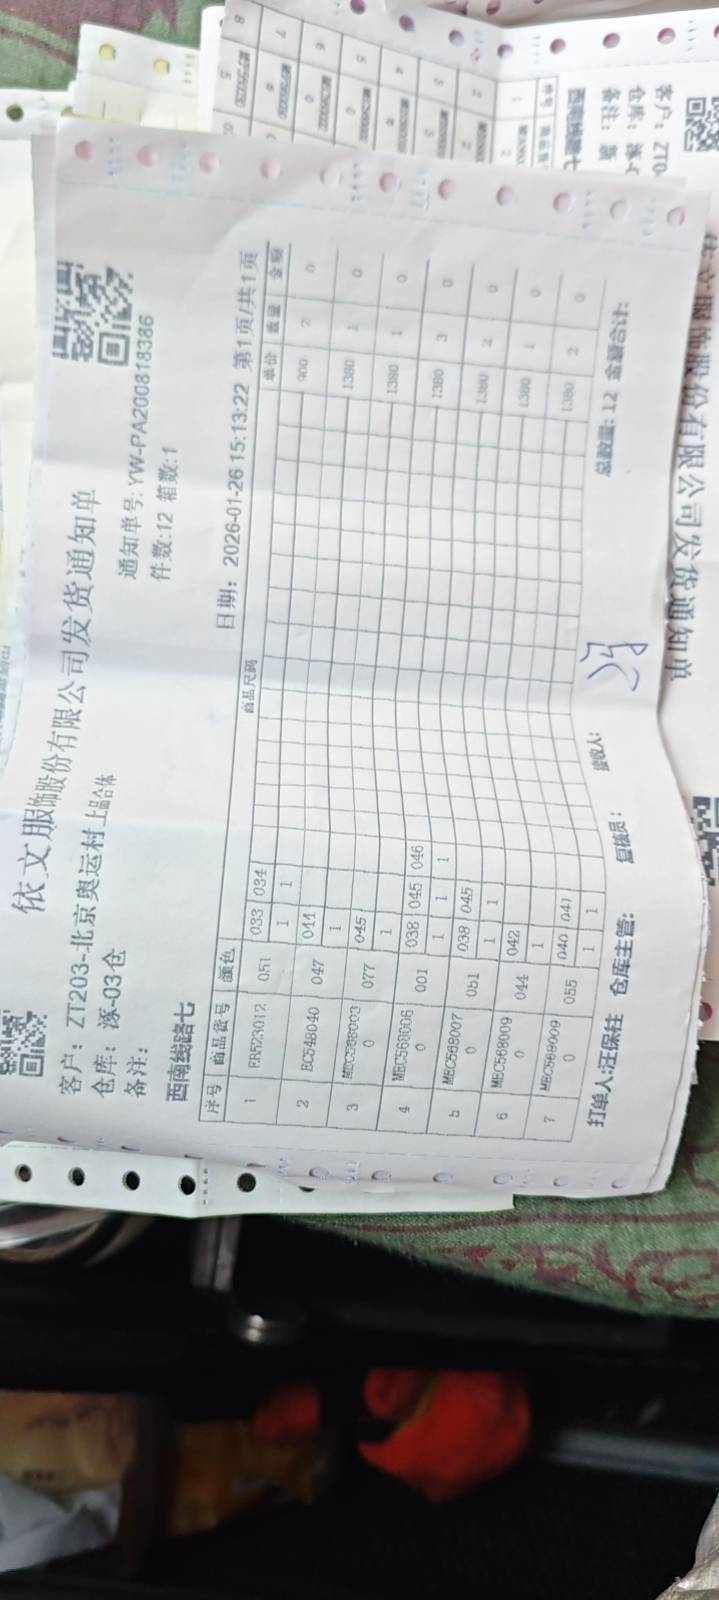 依文服饰股份有限公司发货通知单
客户：ZT203-北京奥运村上品合体
通知单号:YW-PA200818386
仓库：涿-03仓
件数:12 箱数:1
备注：
西南线路七
日期：2026-01-26 15:13:22 第1页/共1页
序号 商品货号 颜色 商品尺码 单价 数量 金额
033 034
1 ER523012 051 1 1 900 2 0
044
2 EC548040 047 1 1380 1 0
045
3 MEC5680030 077 1 1380 1 0
038 045 046
4 MEC5680060 001 1 1 1 1380 3 0
038 045
5 MEC5680070 0b1 1 1 1380 2 0
042
6 MEC5680090 044 1 1380 1 0
040 041
7 MEC5680090 055 1 1 1380 2 0
总数量: 12 金额合计:
打单人:汪保柱 仓库主管: 复核员: 接收人:
依文服饰股份有限公司发货通知单
客户：ZT0
仓库：涿-0
备注：
西南线路七